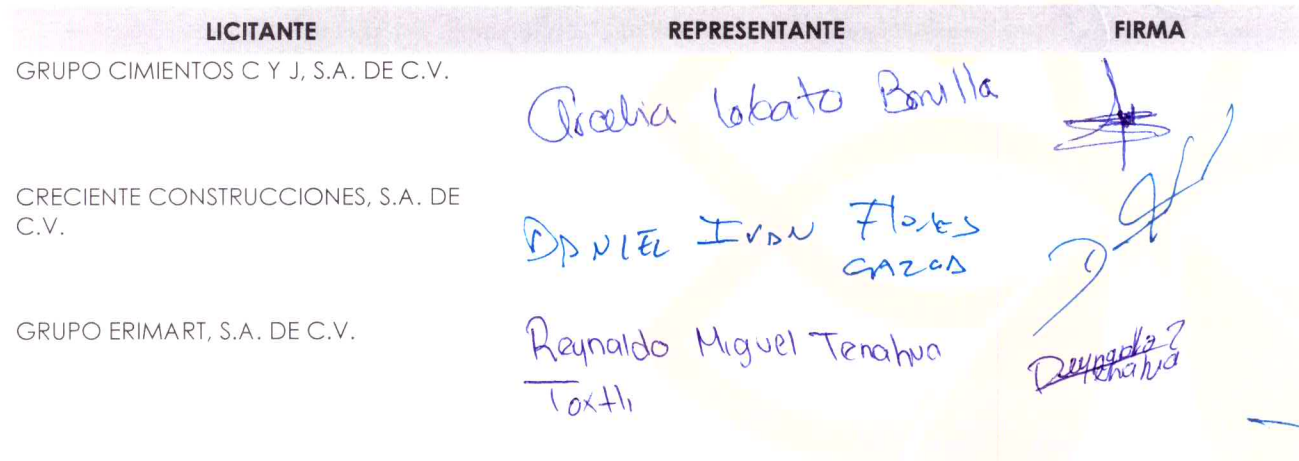 LICITANTE REPRESENTANTE FIRMA
GRUPO CIMIENTOS C Y J, S.A. DE C.V.
Arcelia Lobato Bonilla
CRECIENTE CONSTRUCCIONES, S.A. DE
C.V.
DANIEL IVAN Flores
GAZCA
GRUPO ERIMART, S.A. DE C.V.
Reynaldo Miguel Tenahua
Toxtli
Tenahua